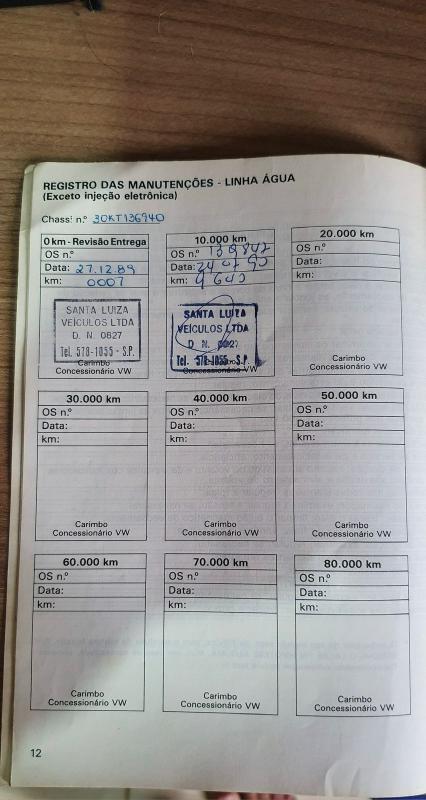 REGISTRO DAS MANUTENÇÕES - LINHA ÁGUA
(Exceto injeção eletrônica)
Chassi n.º 30KT136940
0 km - Revisão Entrega
OS n.º
Data: 27.12.89
km: 0007
SANTA LUIZA
VEÍCULOS LTDA
D. N. 0627
Tel. 578-1055 - S.P.
Carimbo
Concessionário VW
10.000 km
OS n.º 139842
Data: 24 07 90
km: 9640
SANTA LUIZA
VEÍCULOS LTDA
D. N. 0627
Tel. 578-1055 - S.P.
Carimbo
Concessionário VW
20.000 km
OS n.º
Data:
km:
Carimbo
Concessionário VW
30.000 km
OS n.º
Data:
km:
Carimbo
Concessionário VW
40.000 km
OS n.º
Data:
km:
Carimbo
Concessionário VW
50.000 km
OS n.º
Data:
km:
Carimbo
Concessionário VW
60.000 km
OS n.º
Data:
km:
Carimbo
Concessionário VW
70.000 km
OS n.º
Data:
km:
Carimbo
Concessionário VW
80.000 km
OS n.º
Data:
km:
Carimbo
Concessionário VW
12